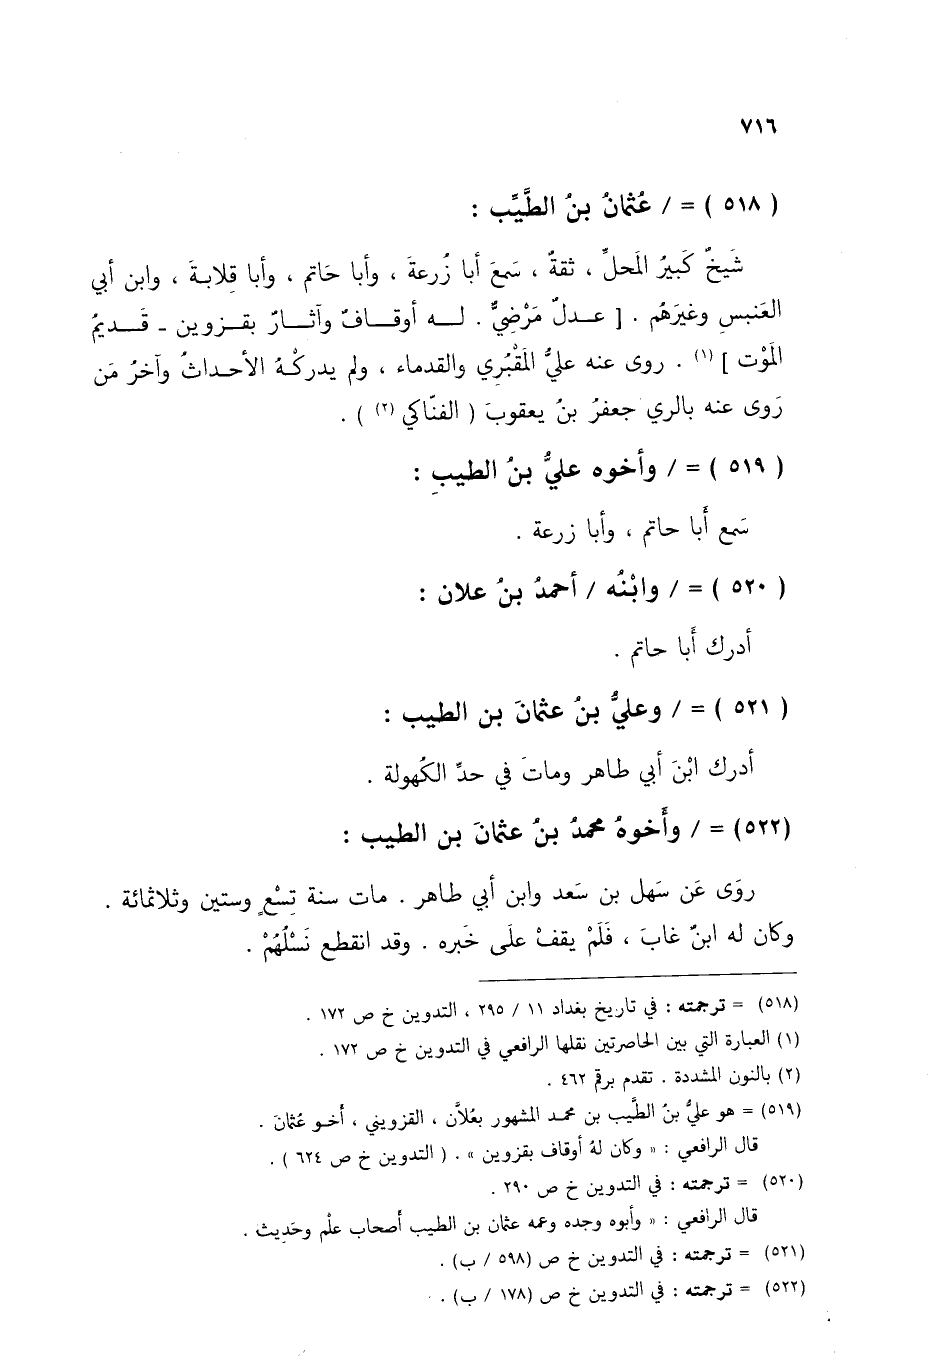 ٧١٦
( ٥١٨ ) = / عُثمانُ بنُ الطَّيِّب :
شَيخٌ كَبيرُ المَحلِّ ، ثقةٌ ، سَمعَ أبا زُرعةَ ، وأبا حَاتم ، وأبا قِلابـةَ ، وابن أبي
العَنبسِ وغيرَهُم . [ عـدلٌ مَرْضِيٌّ . لـــه أوقـــافٌ وآثـــارٌ بقـــزوين ـ قَـــديمُ
المَوْت ] (١) . روى عنه عليُّ المَقْبُري والقدماء ، ولم يدركْـهُ الأحـداثُ وآخرُ مَن
رَوى عنه بالري جعفرُ بنُ يعقوبَ ( الفنّاكي (٢) ) .
( ٥١٩ ) = / وأخوه عليُّ بنُ الطيبِ :
سَمع أَبا حاتم ، وأبا زرعة .
( ٥٢٠ ) = / وابْنُه / أحمدُ بنُ علان :
أدرك أَبا حاتم .
( ٥٢١ ) = / وعليُّ بنُ عثمانَ بن الطيب :
أدرك ابْنَ أبي طاهر وماتَ في حدِّ الكُهولة .
(٥٢٢) = / وأَخوهُ محمدُ بنُ عثمانَ بن الطيب :
روَى عَن سَهل بن سَعد وابن أبي طاهر . مات سنة تِسْعٍ وستين وثلاثمائة .
وكان له ابنٌ غابَ ، فَلَمْ يقفْ على خَبره . وقد انقطع نَسْلُهُمْ .
(٥١٨) = ترجمته : في تاريخ بغداد ١١ / ٢٩٥ ، التدوين خ ص ١٧٢ .
(١) العبارة التي بين الحاصرتين نقلها الرافعي في التدوين خ ص ١٧٢ .
(٢) بالنون المشددة . تقدم برقم ٤٦٢ .
(٥١٩) = هو عليُّ بنُ الطَّيب بن محمد المشهور بعُلاَّن ، القزويني ، أخو عُثمانَ .
قال الرافعي : « وكان لهُ أوقاف بقزوين » . ( التدوين خ ص ٦٢٤ ) .
(٥٢٠) = ترجمته : في التدوين خ ص ٢٩٠ .
قال الرافعي : « وأبوه وجده وعمه عثمان بن الطيب أصحاب علْم وحَديث .
(٥٢١) = ترجمته : في التدوين خ ص (٥٩٨ / ب) .
(٥٢٢) = ترجمته : في التدوين خ ص (١٧٨ / ب) .